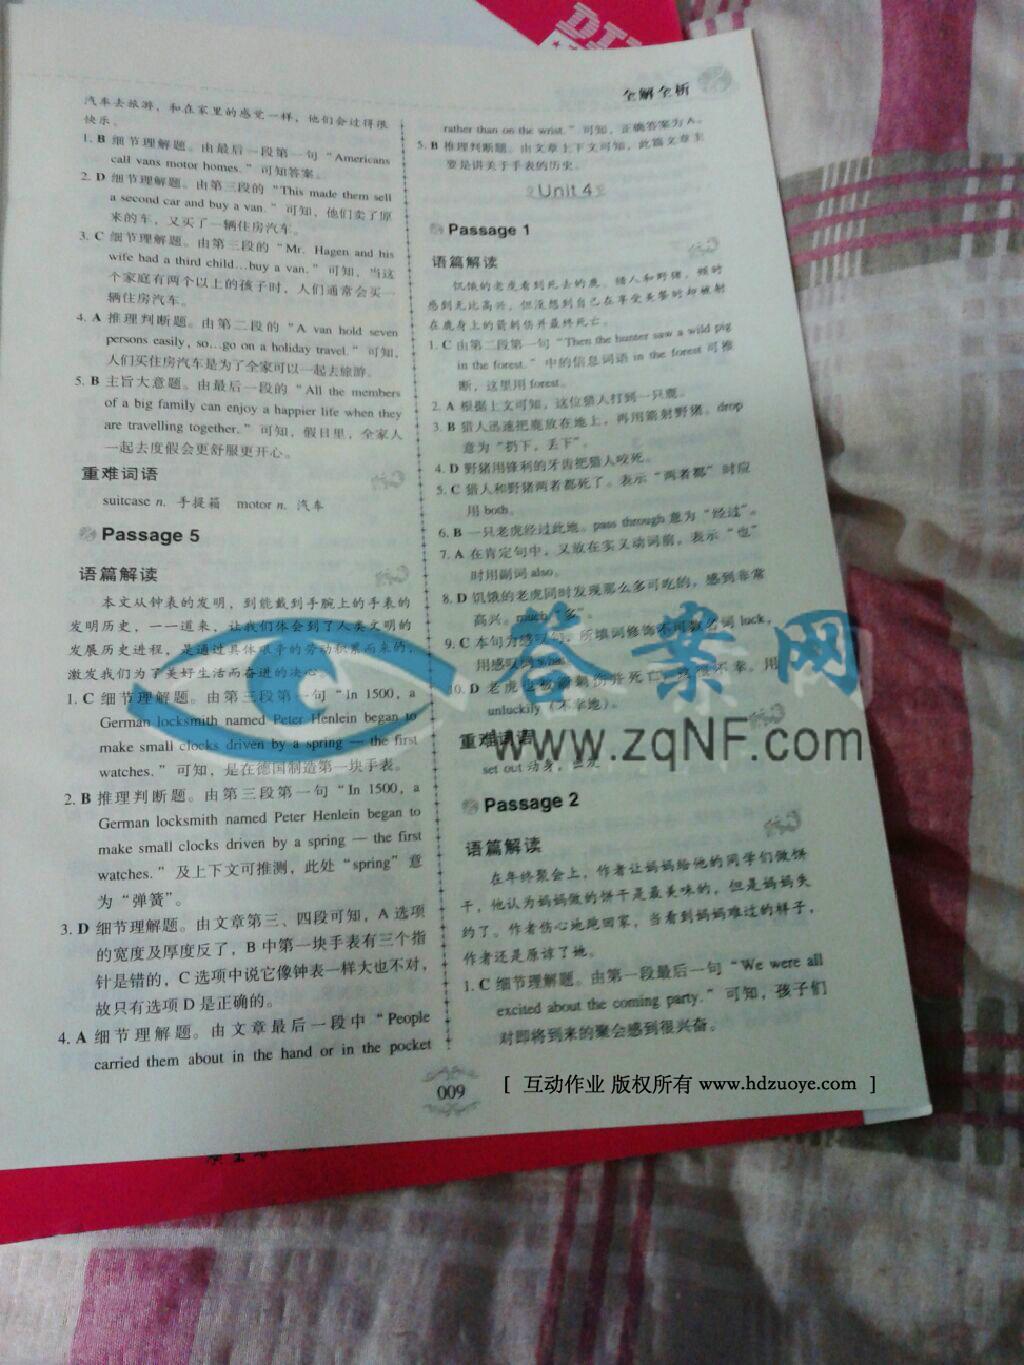 全解全析
汽车去旅游，和在家里的感觉一样，他们会过得很
快乐。
1. B 细节理解题。由最后一段第一句“Americans
call vans motor homes.”可知答案。
2. D 细节理解题。由第三段的“This made them sell
a second car and buy a van.”可知，他们卖了原
来的车，又买了一辆住房汽车。
3. C 细节理解题。由第三段的“Mr. Hagen and his
wife had a third child…buy a van.”可知，当这
个家庭有两个以上的孩子时，人们通常会买一
辆住房汽车。
4. A 推理判断题。由第二段的“A van hold seven
persons easily, so…go on a holiday travel.”可知，
人们买住房汽车是为了全家可以一起去旅游。
5. B 主旨大意题。由最后一段的“All the members
of a big family can enjoy a happier life when they
are travelling together.”可知，假日里，全家人
一起去度假会更舒服更开心。
重难词语
suitcase n. 手提箱 motor n. 汽车
Passage 5
语篇解读
本文从钟表的发明，到能戴到手腕上的手表的
发明历史，一一道来，让我们体会到了人类文明的
发展历史进程，是通过具体艰辛的劳动积累而来的，
激发我们为了美好生活而奋进的决心。
1. C 细节理解题。由第三段第一句“In 1500, a
German locksmith named Peter Henlein began to
make small clocks driven by a spring — the first
watches.”可知，是在德国制造第一块手表。
2. B 推理判断题。由第三段第一句“In 1500, a
German locksmith named Peter Henlein began to
make small clocks driven by a spring — the first
watches.”及上下文可推测，此处“spring”意
为“弹簧”。
3. D 细节理解题。由文章第三、四段可知，A 选项
的宽度及厚度反了，B 中第一块手表有三个指
针是错的，C 选项中说它像钟表一样大也不对，
故只有选项 D 是正确的。
4. A 细节理解题。由文章最后一段中“People
carried them about in the hand or in the pocket
rather than on the wrist.”可知，正确答案为 A。
5. B 推理判断题。由文章上下文可知，此篇文章主
要是讲关于手表的历史。
Unit 4
Passage 1
语篇解读
饥饿的老虎看到死去的鹿、猎人和野猪，顿时
感到无比高兴，但没想到自己在享受美餐时却被射
在鹿身上的箭刺伤并最终死亡。
1. C 由第二段第一句“Then the hunter saw a wild pig
in the forest.”中的信息词语 in the forest 可推
断，这里用 forest。
2. A 根据上文可知，这位猎人打到一只鹿。
3. B 猎人迅速把鹿放在地上，再用箭射野猪。drop
意为“扔下，丢下”。
4. D 野猪用锋利的牙齿把猎人咬死。
5. C 猎人和野猪两者都死了。表示“两者都”时应
用 both。
6. B 一只老虎经过此地。pass through 意为“经过”。
7. A 在肯定句中，又放在实义动词前，表示“也”
时用副词 also。
8. D 饥饿的老虎同时发现那么多可吃的，感到非常
高兴。much“多”。
9. C 本句为感叹句，所填词修饰不可数名词 luck，
用感叹词
10. D 老虎
unluckily（不幸地）。
重难词语
set out 动身，出发
Passage 2
语篇解读
在年终聚会上，作者让妈妈给他的同学们做饼
干，他认为妈妈做的饼干是最美味的，但是妈妈失
约了。作者伤心地跑回家，当看到妈妈难过的样子，
作者还是原谅了她。
1. C 细节理解题。由第一段最后一句“We were all
excited about the coming party.”可知，孩子们
对即将到来的聚会感到很兴奋。
009
答案网
www.zqNF.com
[ 互动作业 版权所有 www.hdzuoye.com ]